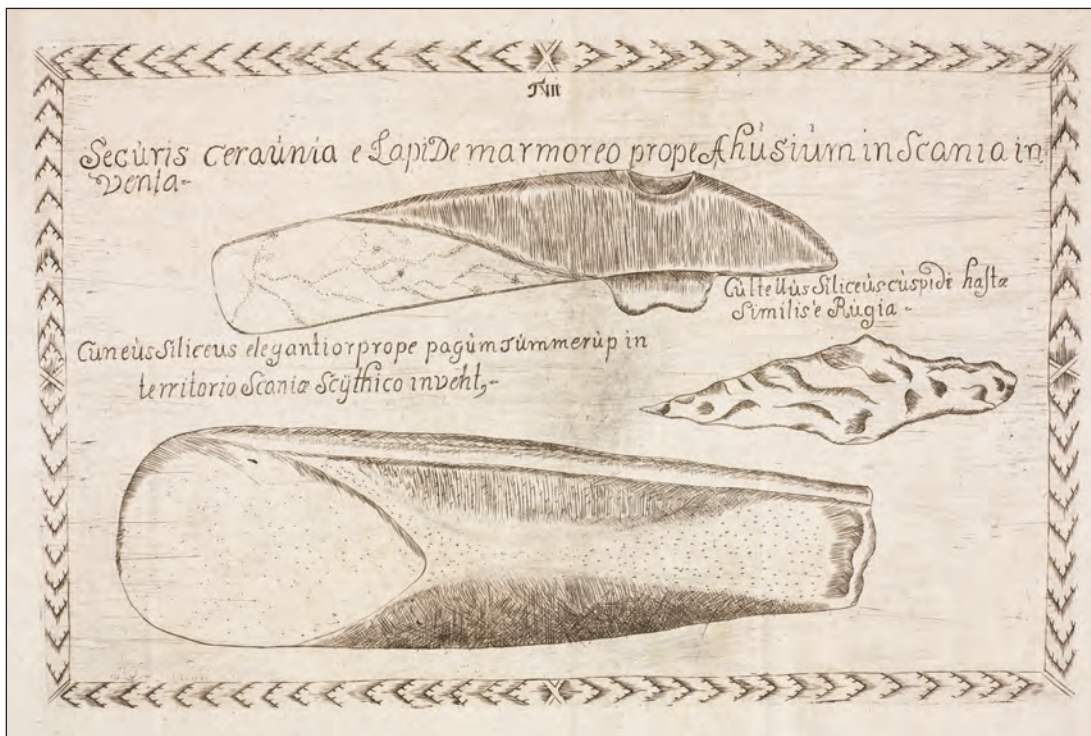 T VII
Secùris ceraùnia e LapiDe marmoreo prope Ahùsiùm in Scania in
venta.
Cùltellùs Siliceùs cùspidi hastæ
Similis è Rùgia.
Cùneùs Siliceus elegantior prope pagùm Tùmmerùp in
territorio Scaniæ Scÿthico invent,